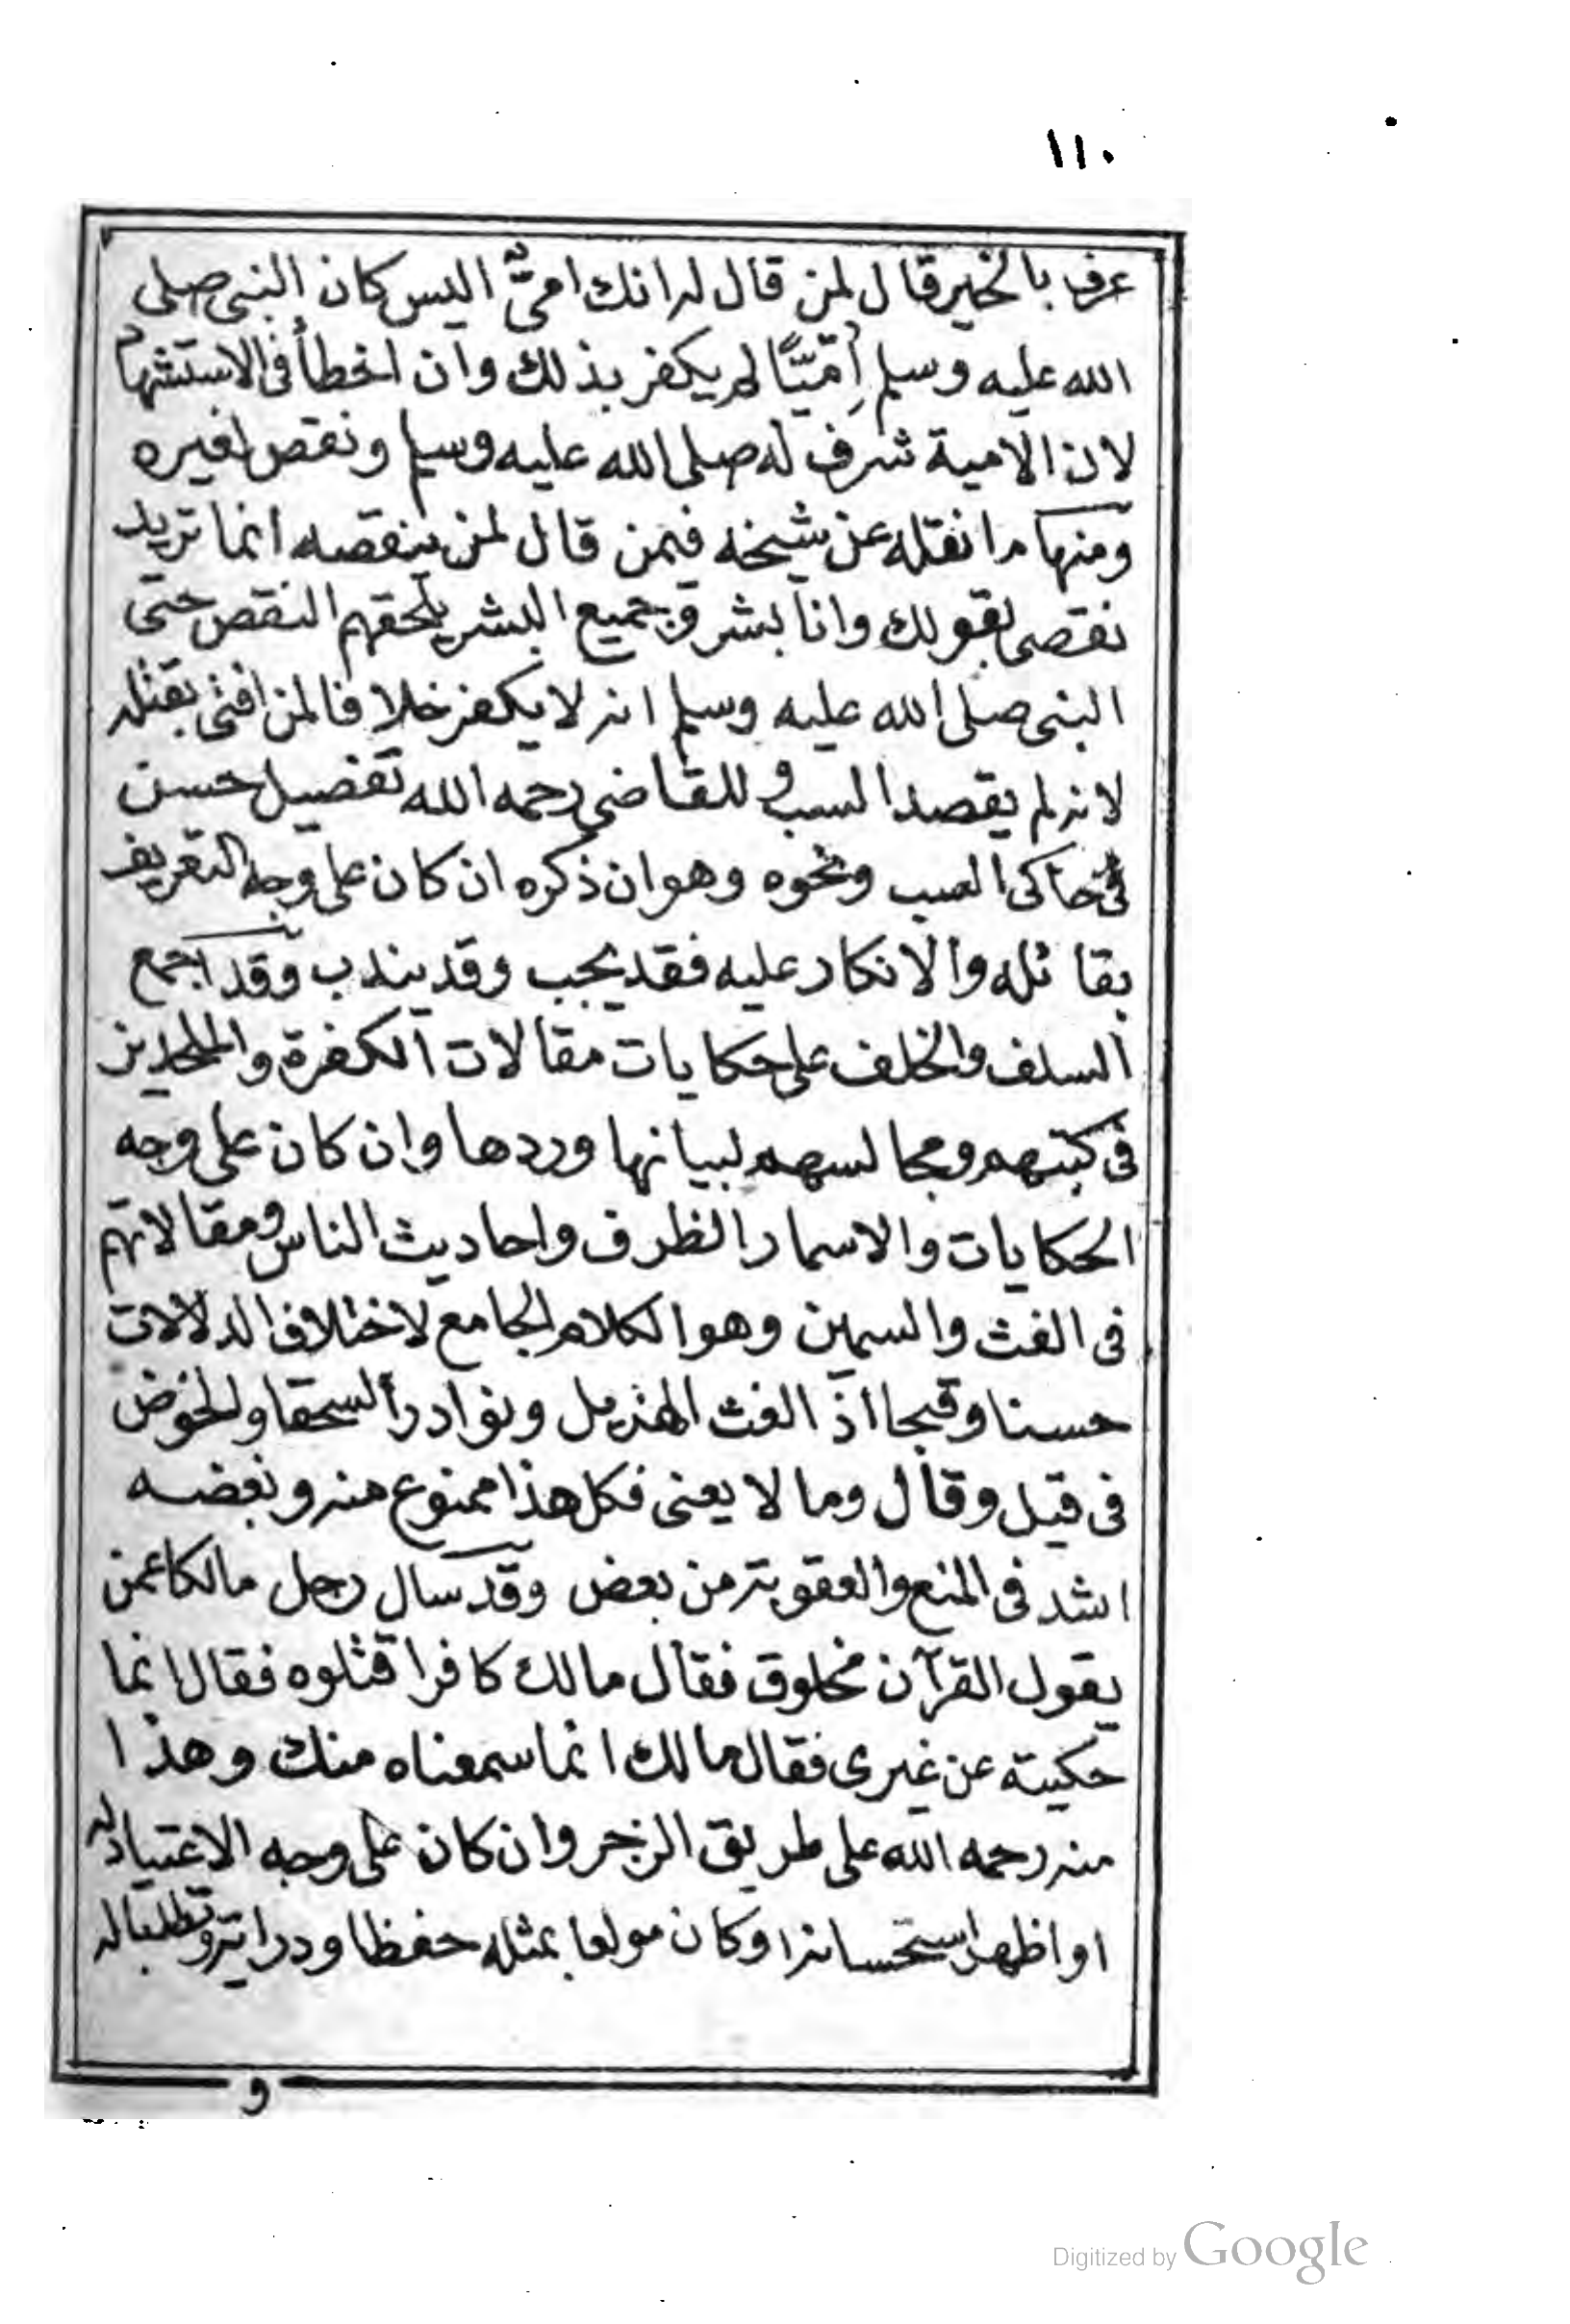 ١١٠
عرف بالخير قال لمن قال له انك اميٌّ اليس كان النبى صلى
الله عليه وسلم اُمّيًّا لم يكفر بذلك وان اخطأ فى الاستشهاد
لان الامية شرف له صلى الله عليه وسلم ونقص لغيره
ومنها ما نقله عن شيخه فيمن قال لمن ينقصه انما تريد
نقصى بقولك وانا بشر وجميع البشر يلحقهم النقص حتى
النبى صلى الله عليه وسلم انه لا يكفر خلافا لمن افتى بقتله
لانه لم يقصد السب وللقاضى رحمه الله تفصيل حسن
فى حاكى السب ونحوه وهو ان ذكره ان كان على وجه التعريف
بقائله والانكار عليه فقد يجب وقد يندب وقد اجمع
السلف والخلف على حكايات مقالات الكفرة والملحدين
فى كتبهم ومجالسهم لبيانها وردها وان كان على وجه
الحكايات والاسمار والظرف واحاديث الناس ومقالاتهم
فى الغث والسمين وهو الكلام الجامع لاختلاف الدلالات
حسنا وقبحا اذ الغث الهزيل ونوادر السخفا والخوض
فى قيل وقال وما لا يعنى فكل هذا ممنوع منه وبعضه
اشد فى المنع والعقوبة من بعض وقد سال رجل مالكا عمن
يقول القرآن مخلوق فقال مالك كافرا قتلوه فقال انما
حكيته عن غيرى فقال مالك انما سمعناه منك وهذا
منه رحمه الله على طريق الزجر وان كان على وجه الاعتياد له
او اظهر استحسانه او كان مولعا بمثله حفظا ودراية وتطلبا له
و
Digitized by Google